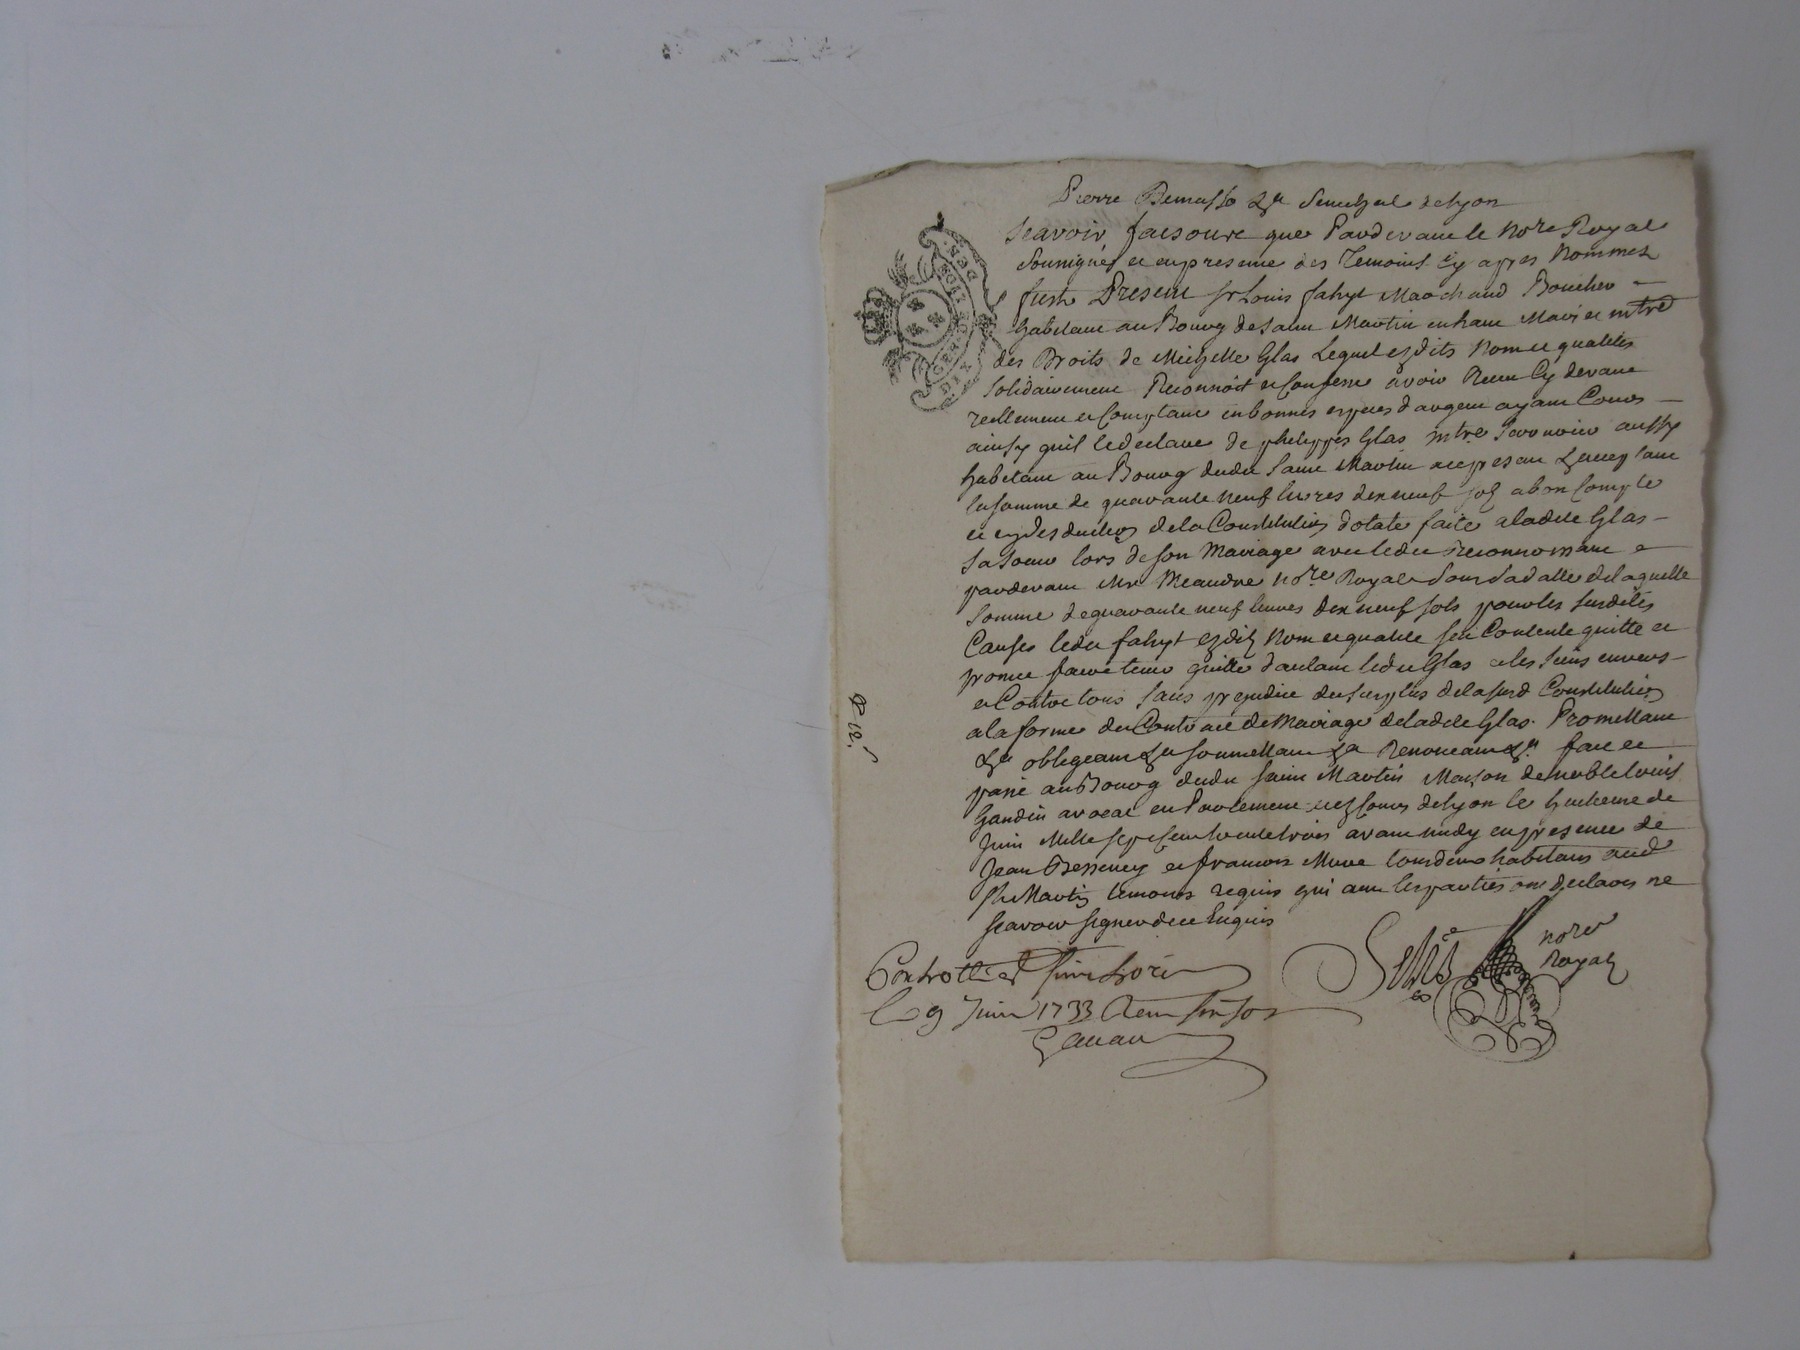 Pierre Demasso &c Senechal de Lyon
Scavoir faisons que Pardevant le no.re Royal
Sousigné et en presence des Temoins Cy apres Nommez
fust Present sr Louis fahyt Marchand Boucher
habitant au Bourg de Saint Martin en haut Mari et mtre
des Droits de Michelle Glas Lequel esdits Nom et qualités
Solidairement Reconnoit et Confesse avoir Receu Cy devant
reellement et Comptant en bonnes especes d'argent ayant Cours
ainsy quil le declare de philippes Glas mtre Serrurier aussy
habitant au Bourg dudit Saint Martin au present & acceptant
la somme de quarante neuf livres dix neuf sols a bon Compte
et en deduction de la Constitution dotale faite a ladite Glas
Sa Soeur lors de son Mariage avec ledit reconnoissant
pardevant Mre Meaudre no.re Royal de laquelle
Somme de quarante neuf livres dix neuf sols pour les susdites
Causes ledit fahyt esdits Nom et qualité s'en Contente quitte et
promet faire tenir quitte d'autant ledit Glas et les siens envers
et Contre tous Sans prejudice du surplus de la susd Constitution
a la forme du Contract de Mariage de ladite Glas. Promettant
&c obligeant &c soumettant &c Renonceant &c. fait et
passé au Bourg dudit Saint Martin Maison de noble Louis
Gandin avocat en Parlement et es Cours de Lyon le huitieme de
Juin Mille sept cent trente trois avant midy en presence de
Jean Bessenay et francois Mure tous deux habitans aud
St Martin temoins requis qui avec les parties ont declaré ne
scavoir signer de ce Enquis
Controllé a St Simphorien
Le 9 Juin 1733 Receu six sols
no.re
Royal